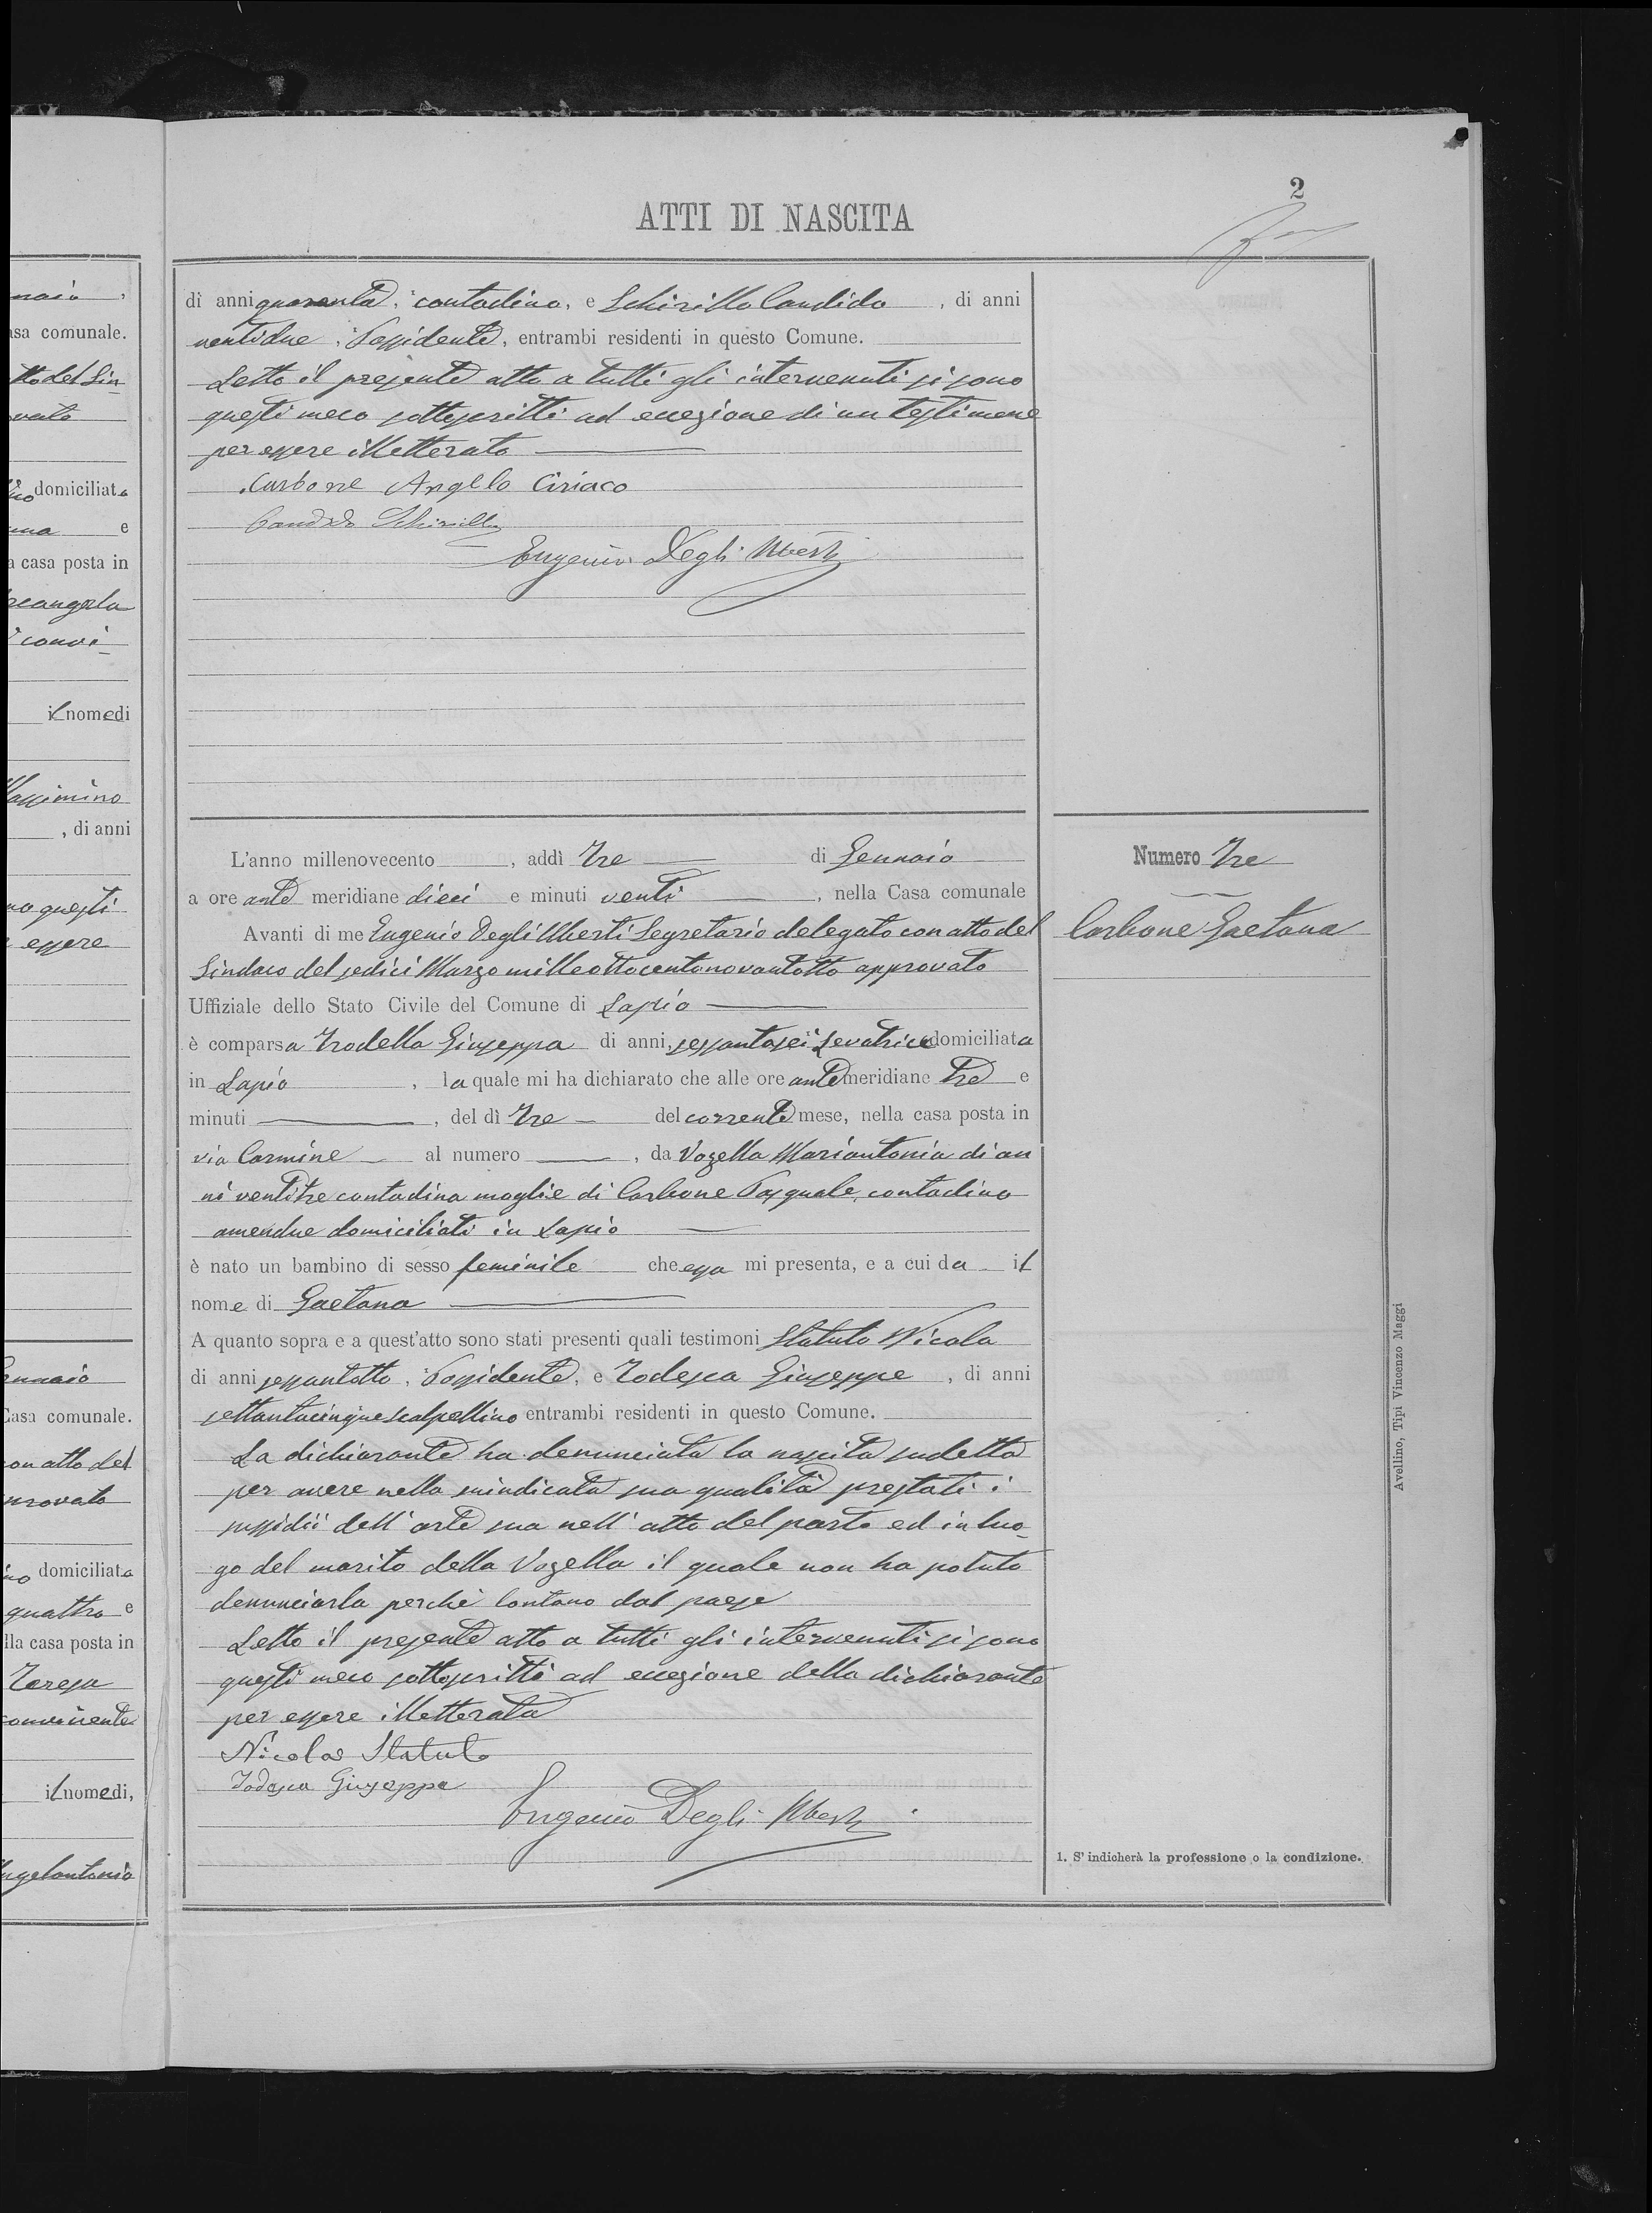 2
ATTI DI NASCITA
di anni quaranta, contadino, e Schirillo Candido, di anni
ventidue, Possidente, entrambi residenti in questo Comune.
Letto il presente atto a tutti gli intervenuti si sono
questi meco sottoscritti ad eccezione di un testimone
per essere illetterato
Carbone Angelo Ciriaco
Candido Schirillo
Eugenio Degli Uberti
L'anno millenovecento, addì Tre di Gennaio
a ore ante meridiane dieci e minuti venti, nella Casa comunale
Avanti di me Eugenio Degli Uberti Segretario delegato con atto del
Sindaco del sedici Marzo milleottocentonovantotto approvato
Uffiziale dello Stato Civile del Comune di Lapio
è comparsa Trodella Giuseppa di anni, sessantasei Levatrice domiciliata
in Lapio, la quale mi ha dichiarato che alle ore ante meridiane tre e
minuti, del dì tre del corrente mese, nella casa posta in
via Carmine al numero, da Vozella Mariantonia di an
ni ventitre contadina moglie di Carbone Pasquale, contadino
amendue domiciliati in Lapio
è nato un bambino di sesso feminile che essa mi presenta, e a cui da il
nome di Gaetana
A quanto sopra e a quest'atto sono stati presenti quali testimoni Statuto Nicola
di anni sessantotto, Possidente, e Todesca Giuseppe, di anni
settantacinque scalpellino entrambi residenti in questo Comune.
La dichiarante ha denunciata la nascita sudetta
per avere nella suindicata sua qualità prestati i
sussidii dell'arte sua nell'atto del parto ed in luo-
go del marito della Vozella il quale non ha potuto
denunciarla perchè lontano dal paese
Letto il presente atto a tutti gli intervenuti si sono
questi meco sottoscritti ad eccezione della dichiarante
per essere illetterata
Nicola Statuto
Todesca Giuseppe
Eugenio Degli Uberti
Numero Tre
Carbone Gaetana
1. S'indicherà la professione o la condizione.
Avellino, Tipi Vincenzo Maggi
naio,
asa comunale.
tto del Sin-
ovato
domiciliata
e
a casa posta in
rcangela
convi-
il nome di
Massimino
, di anni
no questi
essere
ennaio
Casa comunale.
con atto del
provato
domiciliata
quattro e
lla casa posta in
Teresa
convivente
il nome di,
Angelantonio